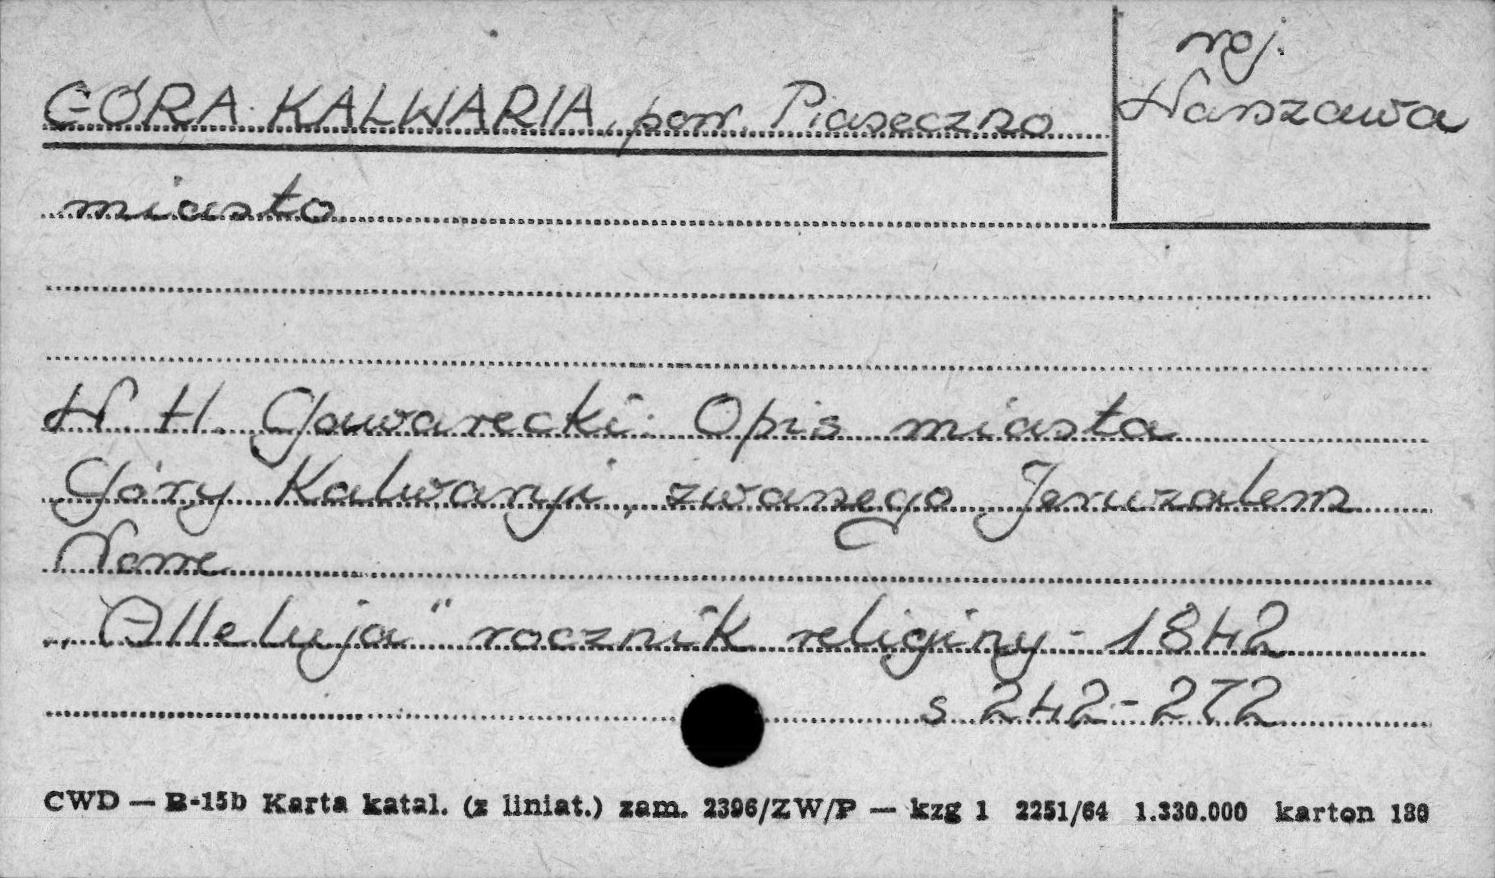 woj.
Warszawa
GÓRA KALWARIA, pow. Piaseczno
miasto
W. H. Gawarecki: Opis miasta
Góry Kalwaryi, zwanego Jeruzalem
Nowe
„Alleluja" rocznik religijny - 1842
s 242-272
CWD — B-15b Karta katal. (z liniat.) zam. 2396/ZW/P — kzg 1 2251/64 1.330.000 karton 180